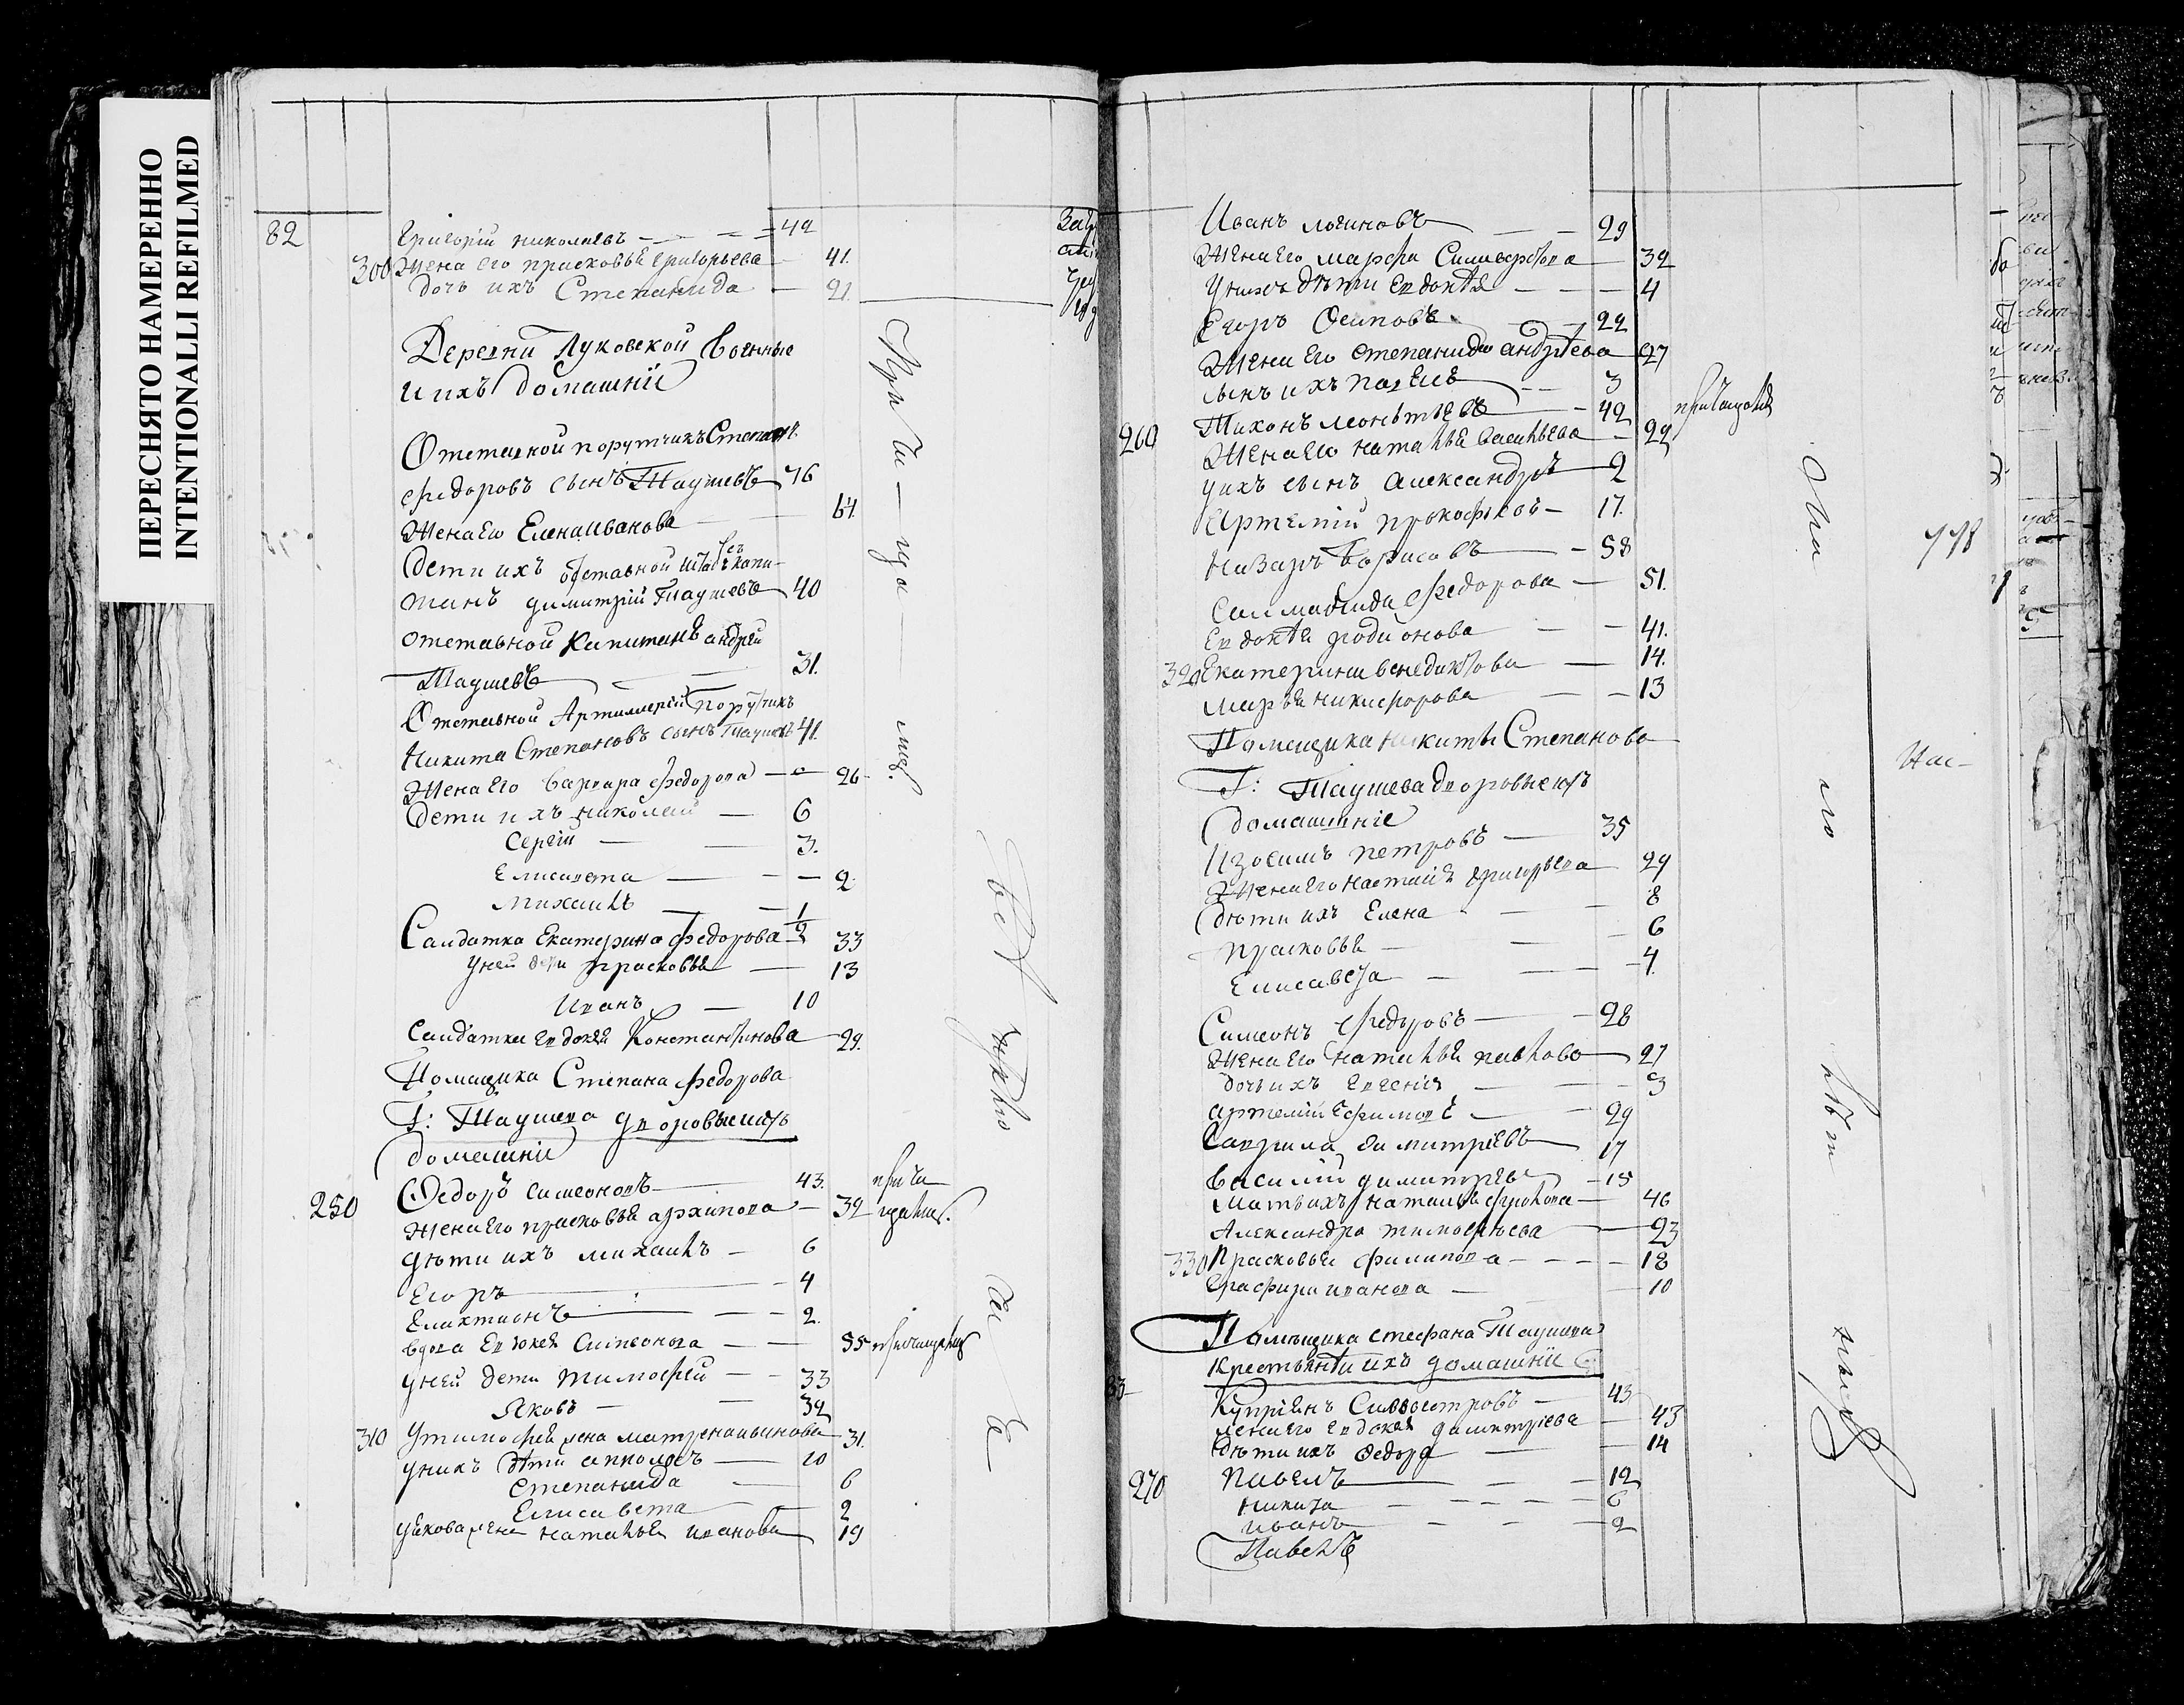 ПЕРЕСНЯТО НАМЕРЕННО
INTENTIONALLI REFILMED
82 Григорій николаевъ 42
300 Жена его прасковья григорьева 41.
дочь ихъ Степанида 21.
Деревни Луковской Военные
и ихъ домашніи
Отставной порутчикъ Степанъ
федоровъ сынъ Таушевъ 76
Жена его Елена иванова 64
Дети ихъ отставной капи-
танъ димитрій Таушевъ 40
отставной капитанъ андрей
Таушевъ 31.
Отставной Артиллеріи порутчикъ
Никита Степановъ сынъ Таушевъ 41.
Жена его варвара федорова 26
Дети ихъ николай 6
Сергій 3.
Елисавета 2
Михаилъ 1/2
Салдатка Екатерина федорова 33
У ней дети прасковья 13
Иванъ 10
Салдатка Евдокея Константинова 29.
Помещика Степана федорова
Г: Таушева дворовые ихъ
домашніи
250 Федоръ симеоновъ 43.
Жена его прасковья архипова 32
дѣти ихъ михаилъ 6
Егоръ 4
2.
вдова Евдокея Симеонова 55
у ней дети тимофей 33
Яковъ 32
310 У тимофея жена матрена иванова 31.
у нихъ дѣти 10
Степанида 6
Елисавета 2
у якова жена наталья иванова 19
Иванъ логиновъ 29
Жена его марфа Силиверстова 32
У нихъ дѣти Евдокѣя 4
Егоръ Осиповъ 22
Жена его степанида андрѣева 27
сынъ ихъ павелъ 3
260 Тихонъ леонтьевъ 42
Жена его наталья васильева 22
у ихъ сынъ александръ 2
Артемій прокофьевъ 17.
Назаръ Борисовъ 58
федорова 51.
Евдокѣя родионова 41.
320 Екатерина венедиктова 14.
марья никифорова 13
Помещика никиты Степанова
Г: Таушева дворовые ихъ
домашніе
Изосимъ петровъ 35
Жена его настасья григорьева 29
дѣти ихъ Елена 8
прасковья 6
Елисавета 4.
Симеонъ федоровъ 28
Жена его наталья павлова 27
дочь ихъ Евгенія 3
артемій Ефимовъ 29
Гаврила димитріевъ 17
василій димитріевъ 15
Мать ихъ наталья 46
Александра тимофѣева 23
330 Прасковья филипова 18
иванова 10
Помѣщика стефана Таушева
крестьянѣ и ихъ домашніи
83 Купріянъ Силвестровъ 43
жена его Евдокея димитріева 43
Дѣти ихъ Федора 14
270 Павелъ 12
никита 6
иванъ 2
Павелъ